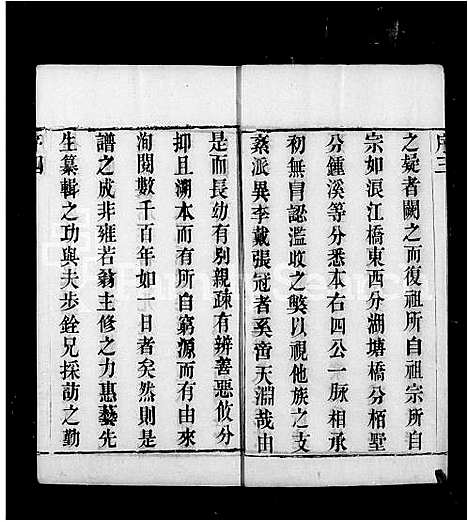 序三
之疑者闕之而復祖所自祖宗所自
宗如泿江橋東西分湖塘橋分栢墅
分鍾溪等分悉本右四公一脉相承
初無冒認濫收之獘以視他族之支
紊派異李戴張冠者奚啻天淵哉由
是而長幼有别親疎有辨善惡攸分
抑且溯本而有所自窮源而有由來
洵閱數千百年如一日者矣然則是
譜之成非雍若翁主修之力惠藝先
生纂輯之功與夫步銓兄採訪之勤
序四